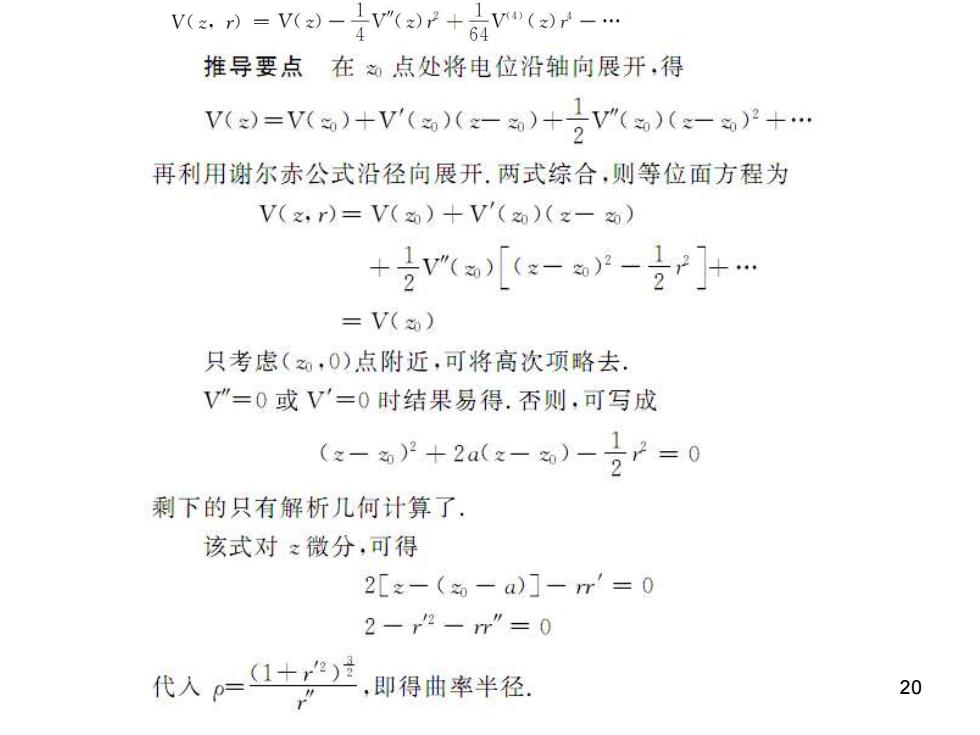 V(z, r) = V(z) − \frac{1}{4}V″(z)r² + \frac{1}{64}V⁽⁴⁾(z)r⁴ − ⋯
推导要点 在 z₀ 点处将电位沿轴向展开,得
V(z)=V(z₀)+V′(z₀)(z−z₀)+\frac{1}{2}V″(z₀)(z−z₀)²+⋯
再利用谢尔赤公式沿径向展开.两式综合,则等位面方程为
V(z,r)= V(z₀)+V′(z₀)(z−z₀)
+\frac{1}{2}V″(z₀)[(z−z₀)²−\frac{1}{2}r²]+⋯
= V(z₀)
只考虑(z₀,0)点附近,可将高次项略去.
V″=0 或 V′=0 时结果易得.否则,可写成
(z−z₀)²+2a(z−z₀)−\frac{1}{2}r² = 0
剩下的只有解析几何计算了.
该式对 z 微分,可得
2[z−(z₀−a)]−rr′ = 0
2−r′²−rr″ = 0
代入 ρ=\frac{(1+r′²)^{\frac{3}{2}}}{r″},即得曲率半径.
20